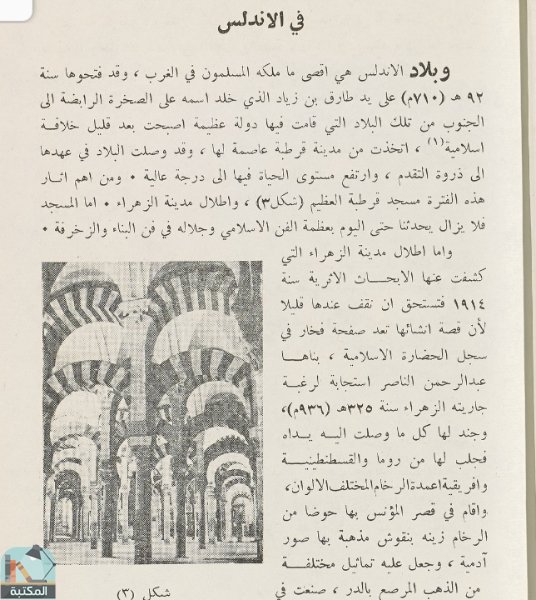 في الاندلس
وبلاد الاندلس هي اقصى ما ملكه المسلمون في الغرب ، وقد فتحوها سنة
٩٢ هـ (٧١٠م) على يد طارق بن زياد الذي خلد اسمه على الصخرة الرابضة الى
الجنوب من تلك البلاد التي قامت فيها دولة عظيمة اصبحت بعد قليل خلافة
اسلامية(١) ، اتخذت من مدينة قرطبة عاصمة لها ، وقد وصلت البلاد في عهدها
الى ذروة التقدم ، وارتفع مستوى الحياة فيها الى درجة عالية ٠ ومن اهم اثار
هذه الفترة مسجد قرطبة العظيم (شكل٣) ، واطلال مدينة الزهراء ٠ اما المسجد
فلا يزال يحدثنا حتى اليوم بعظمة الفن الاسلامي وجلاله في فن البناء والزخرفة ٠
واما اطلال مدينة الزهراء التي
كشفت عنها الابحاث الاثرية سنة
١٩١٤ فتستحق ان نقف عندها قليلا
لأن قصة انشائها تعد صفحة فخار في
سجل الحضارة الاسلامية ، بناها
عبدالرحمن الناصر استجابة لرغبة
جاريته الزهراء سنة ٣٢٥هـ (٩٣٦م)،
وجند لها كل ما وصلت اليه يداه
فجلب لها من روما والقسطنطينية
وافريقية اعمدة الرخام المختلف الالوان،
واقام في قصر المؤنس بها حوضا من
الرخام زينه بنقوش مذهبة بها صور
آدمية ، وجعل عليه تماثيل مختلفة
من الذهب المرصع بالدر ، صنعت في
شكل (٣)
المكتبة